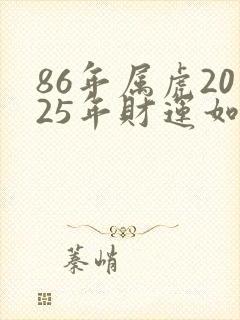 86年属虎20
25年財運如
蓁峭